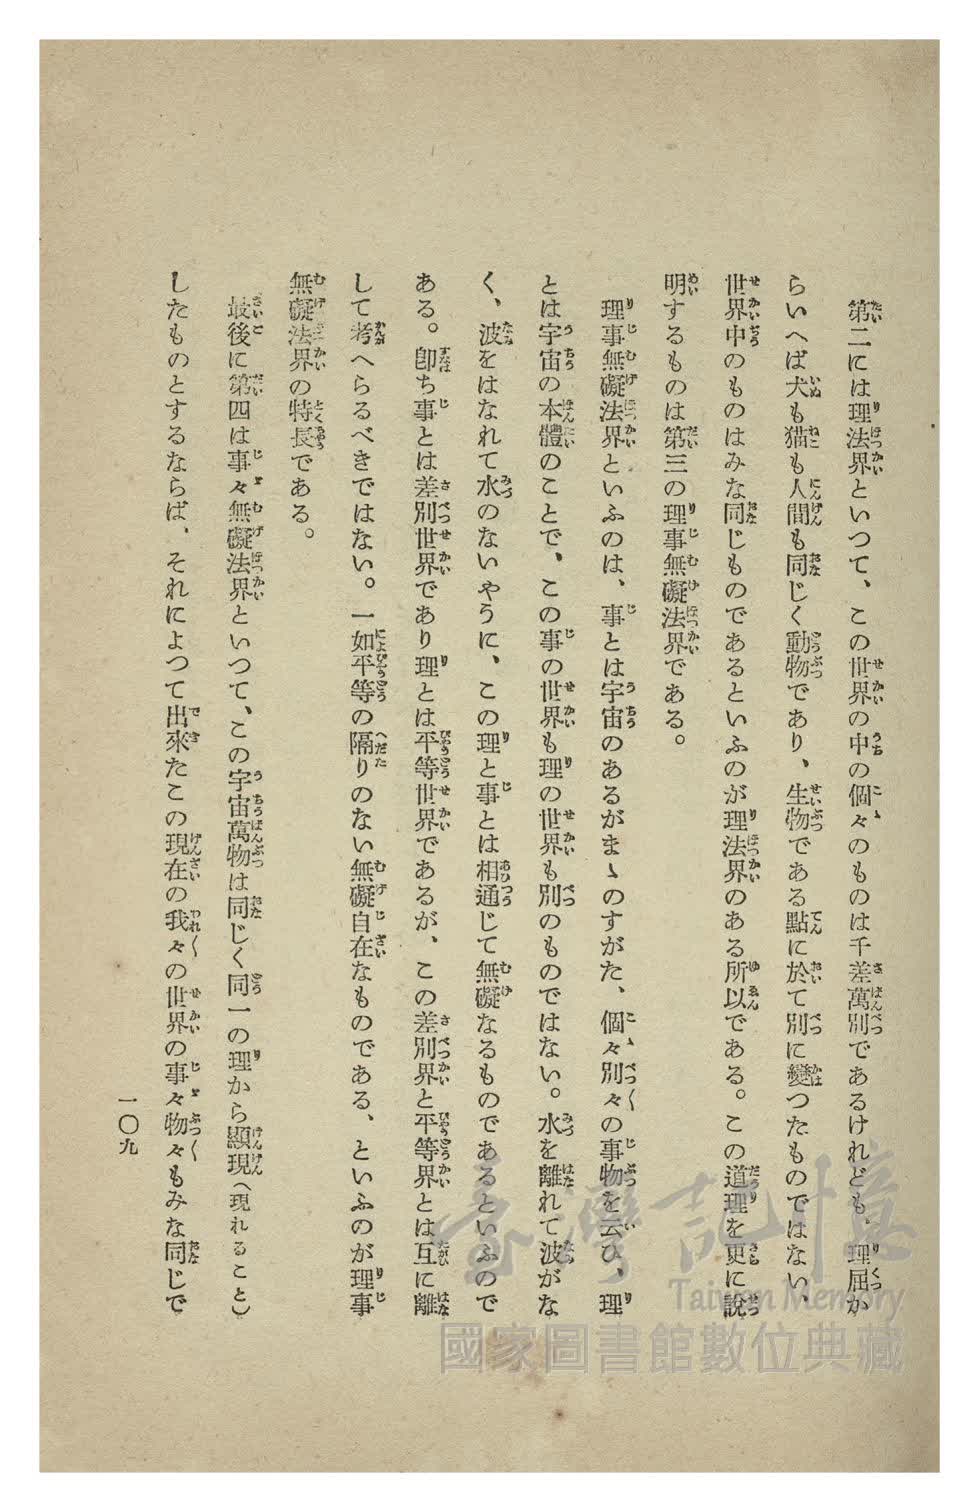 第二には理法界といつて、この世界の中の個々のものは千差萬別であるけれども、理屈か
らいへば犬も猫も人間も同じく動物であり、生物である點に於て別に變つたものではない、
世界中のものはみな同じものであるといふのが理法界のある所以である。この道理を更に說
明するものは第三の理事無礙法界である。
理事無礙法界といふのは、事とは宇宙のあるがまゝのすがた、個々別々の事物を云ひ、理
とは宇宙の本體のことで、この事の世界も理の世界も別のものではない。水を離れて波がな
く、波をはなれて水のないやうに、この理と事とは相通じて無礙なるものであるといふので
ある。卽ち事とは差別世界であり理とは平等世界であるが、この差別界と平等界とは互に離
して考へらるべきではない。一如平等の隔りのない無礙自在なものである、といふのが理事
無礙法界の特長である。
最後に第四は事々無礙法界といつて、この宇宙萬物は同じく同一の理から顯現（現れること）
したものとするならば、それによつて出來たこの現在の我々の世界の事々物々もみな同じで
一〇九
臺灣記憶
Taiwan Memory
國家圖書館數位典藏